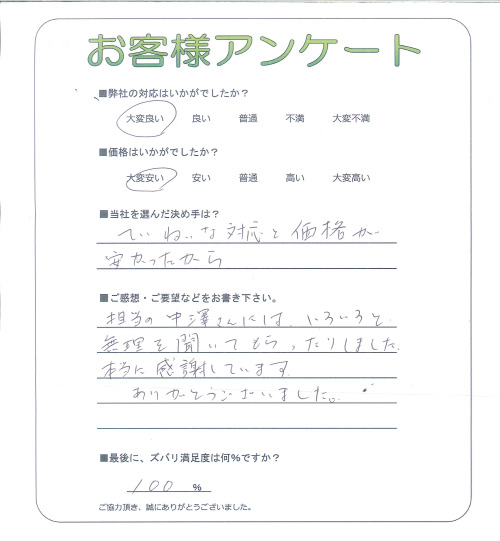 お客様アンケート
■弊社の対応はいかがでしたか？
大変良い 良い 普通 不満 大変不満
■価格はいかがでしたか？
大変安い 安い 普通 高い 大変高い
■当社を選んだ決め手は？
ていねいな対応と価格が
安かったから
■ご感想・ご要望などをお書き下さい。
担当の中澤さんには、いろいろと
無理を聞いてもらったりしました。
本当に感謝しています。
ありがとうございました。
■最後に、ズバリ満足度は何％ですか？
100 %
ご協力頂き、誠にありがとうございました。